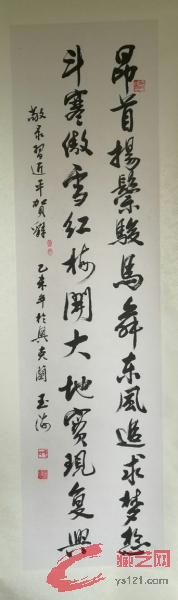 昂首揚鬃駿馬舞东風追求梦想
斗寒傲雪红梅開大地實現复興
敬录習近平賀辭
乙未年於奥克蘭 玉海
ys121.com